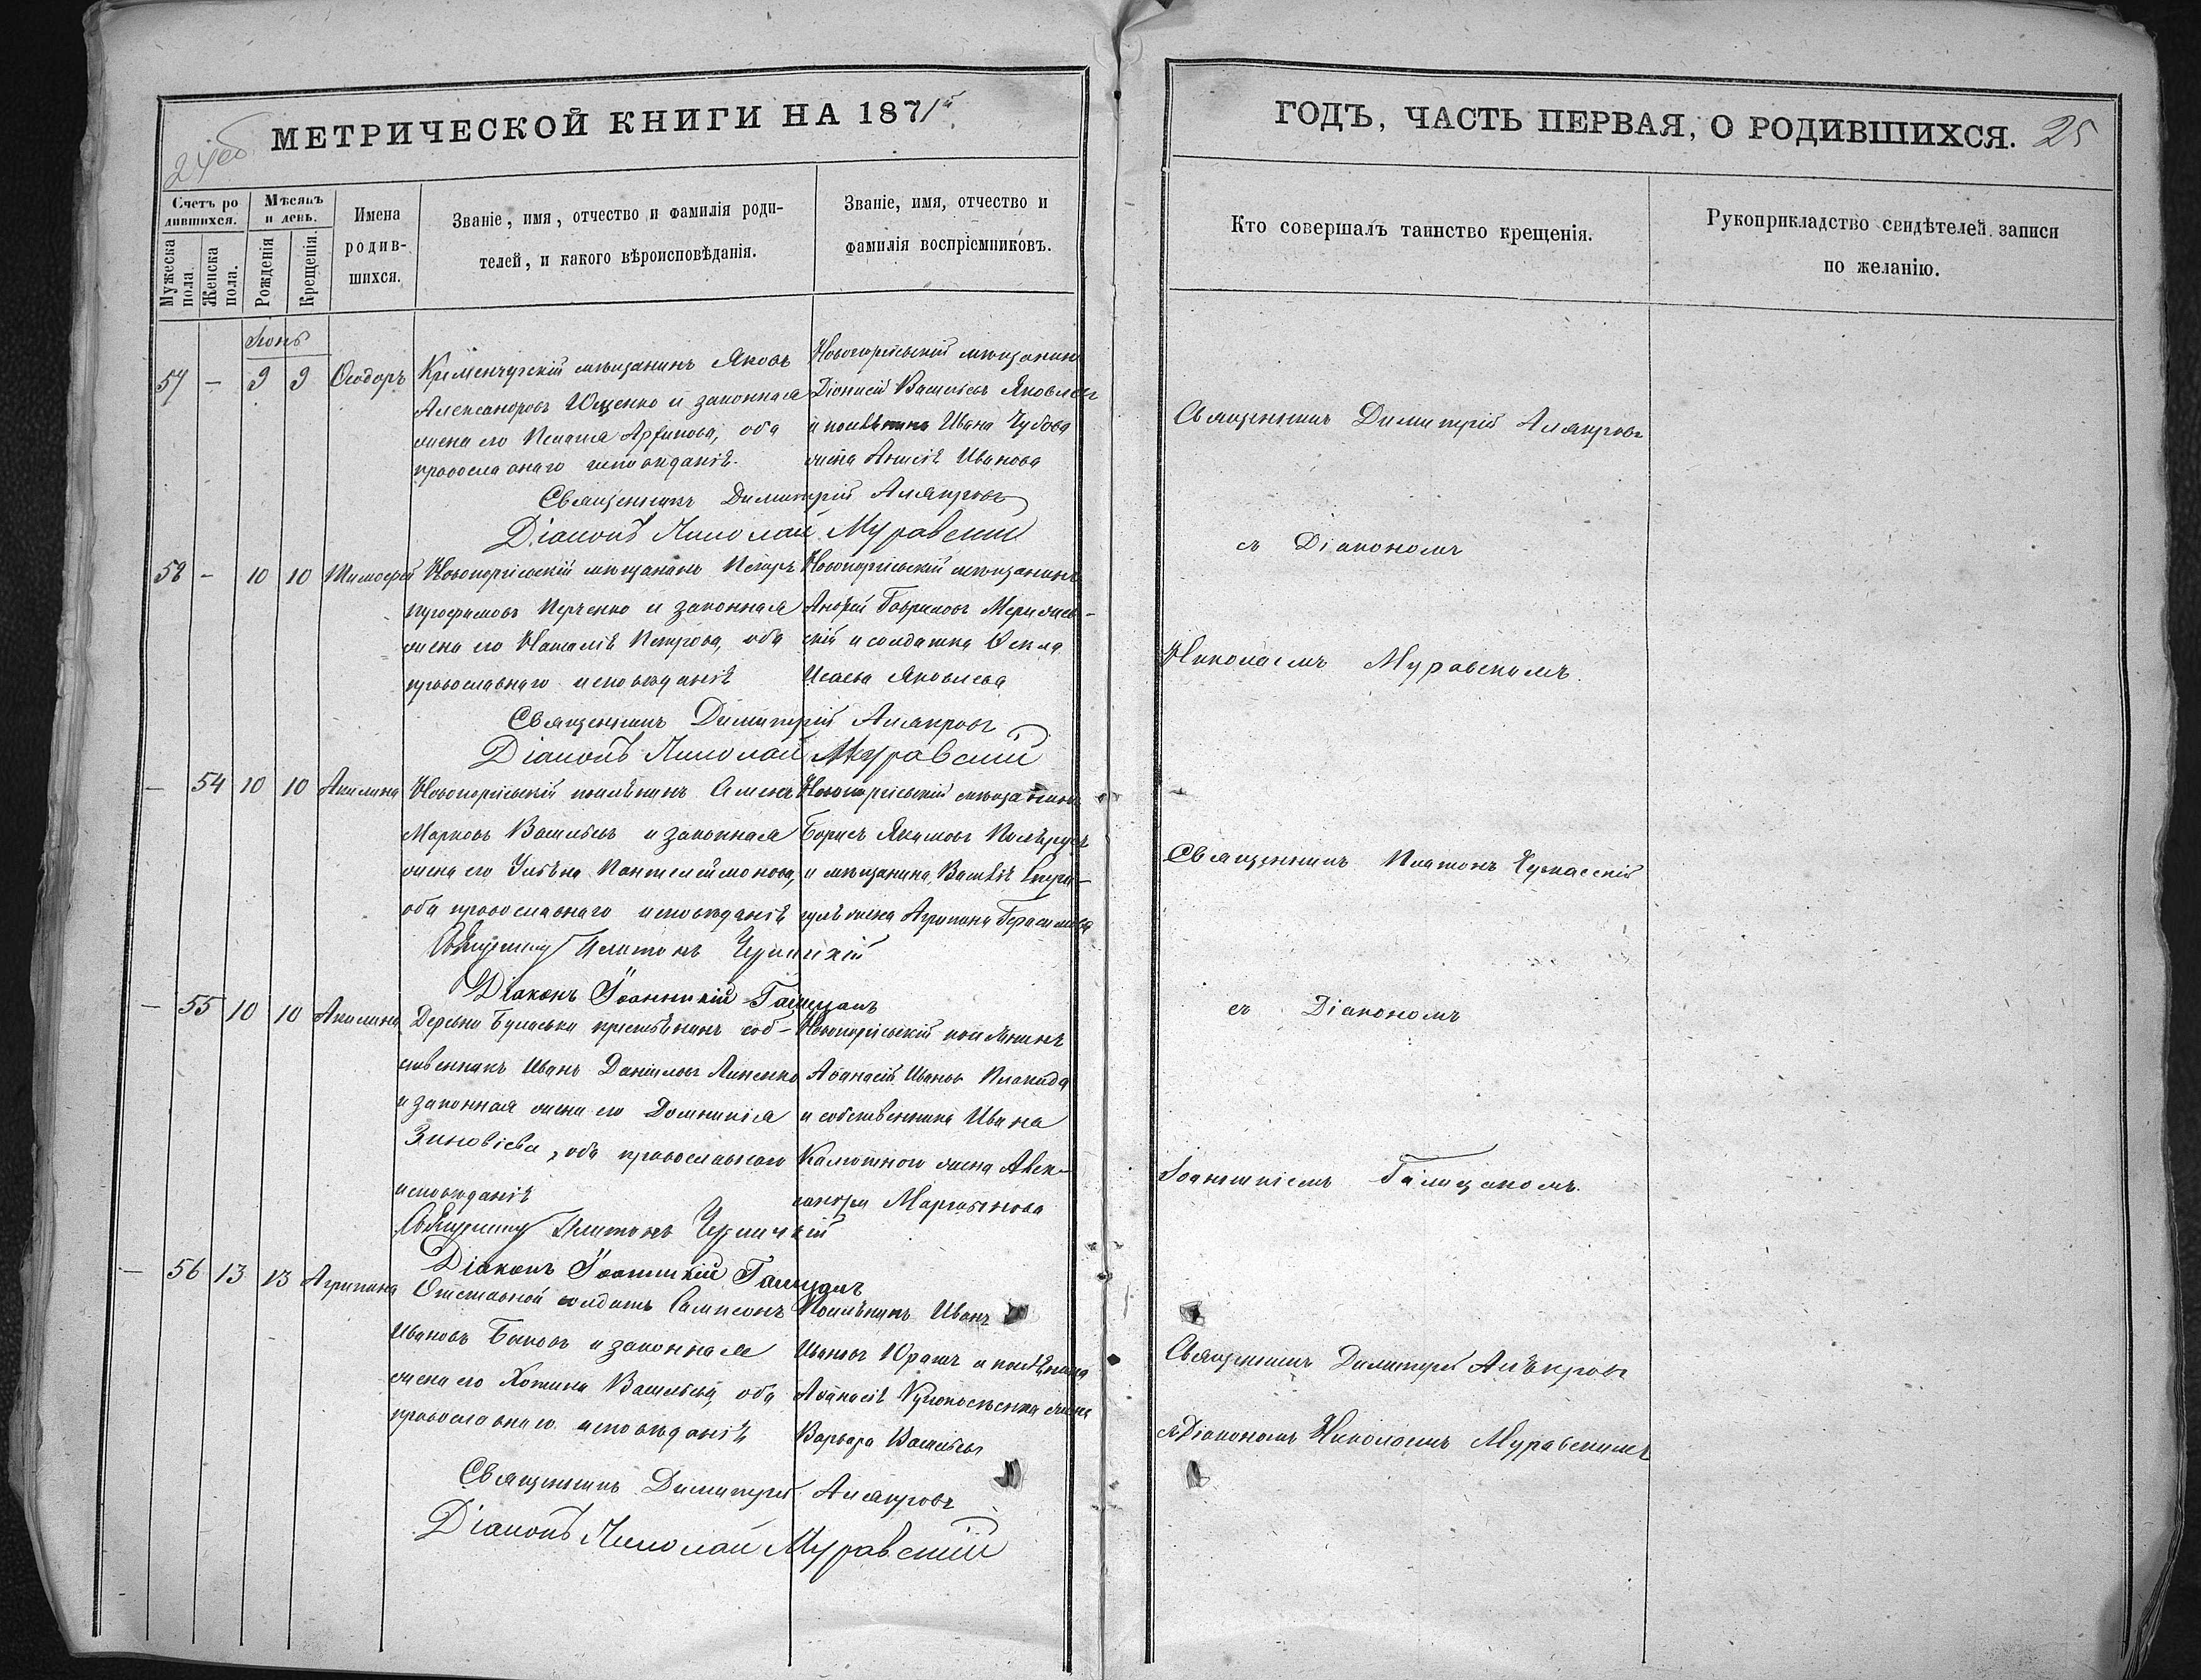 24об
МЕТРИЧЕСКОЙ КНИГИ НА 1871й
Счетъ ро
дившихся.
Мѣсяцъ
и день.
Имена
родив-
шихся.
Званіе, имя, отчество и фамилія роди-
телей, и какого вѣроисповѣданія.
Званіе, имя, отчество и
фамилія воспріемниковъ.
Мужеска
пола.
Женска
пола.
Рожденія
Крещенія.
Іюнь
57 — 9 9 Ѳеодоръ
Кременчугскій мѣщанинъ Яковъ
Александровъ Ющенко и законная
жена его Архипова, оба
православнаго исповѣданія.
Новогеоргіевскій мѣщанинъ
Діонисій Васильевъ Яковлев
и поселянина Ивана Чубова
жена Анисія Иванова
Священникъ Димитрій Алякровъ
Діаконъ Николай Муравскій
58 — 10 10 Тимофей
Новогеоргіевскій мѣщанинъ Петръ
Трофимовъ Перченко и законная
жена его Наталія Петрова, оба
православнаго исповѣданія
Новогеоргіевскій мѣщанинъ
Андрей Гавриловъ
скій и солдатка Ѳекла
Исаева Яковлева
Священникъ Димитрій Алякровъ
Діаконъ Николай Муравскій
— 54 10 10 Акилина
Новогеоргіевскій поселянинъ Семенъ
Марковъ Васильевъ и законная
жена его Ульяна Пантелеймонова,
оба православнаго исповѣданія
Новогеоргіевскій мѣщанинъ
Борисъ Якимовъ
и мѣщанина Василія
жена Агрипина Герасимова
Священникъ Платонъ
Діаконъ Іоанникій Галицанъ
— 55 10 10 Акилина
Деревни крестьянинъ соб-
ственникъ Иванъ Даніиловъ Линенко
и законная жена его Домникія
Зиновіева, оба православнаго
исповѣданія
Новогеоргіевскій поселянинъ
Аѳанасій Ивановъ Плакида
и собственника Ивана
Калюжного жена Алек-
сандра Мартынова
Священникъ Платонъ
Діаконъ Іоанникій Галицанъ
— 56 13 13 Агрипина
Отставной солдатъ Сампсонъ
Ивановъ Быковъ и законная
жена его Васильева, оба
православнаго исповѣданія
Поселянинъ Иванъ
Ивановъ Юрашъ и поселянина
Аѳанасія жена
Варвара Васильева
Священникъ Димитрій Алякровъ
Діаконъ Николай Муравскій
ГОДЪ, ЧАСТЬ ПЕРВАЯ, О РОДИВШИХСЯ. 25
Кто совершалъ таинство крещенія.
Рукоприкладство свидѣтелей записи
по желанію.
Священникъ Димитрій Алякровъ
съ Діакономъ
Николаемъ Муравскимъ.
Священникъ Платонъ
съ Діакономъ
Іоанникіемъ Галицаномъ.
Священникъ Димитрій Алякровъ
съ Діакономъ Николаемъ Муравскимъ